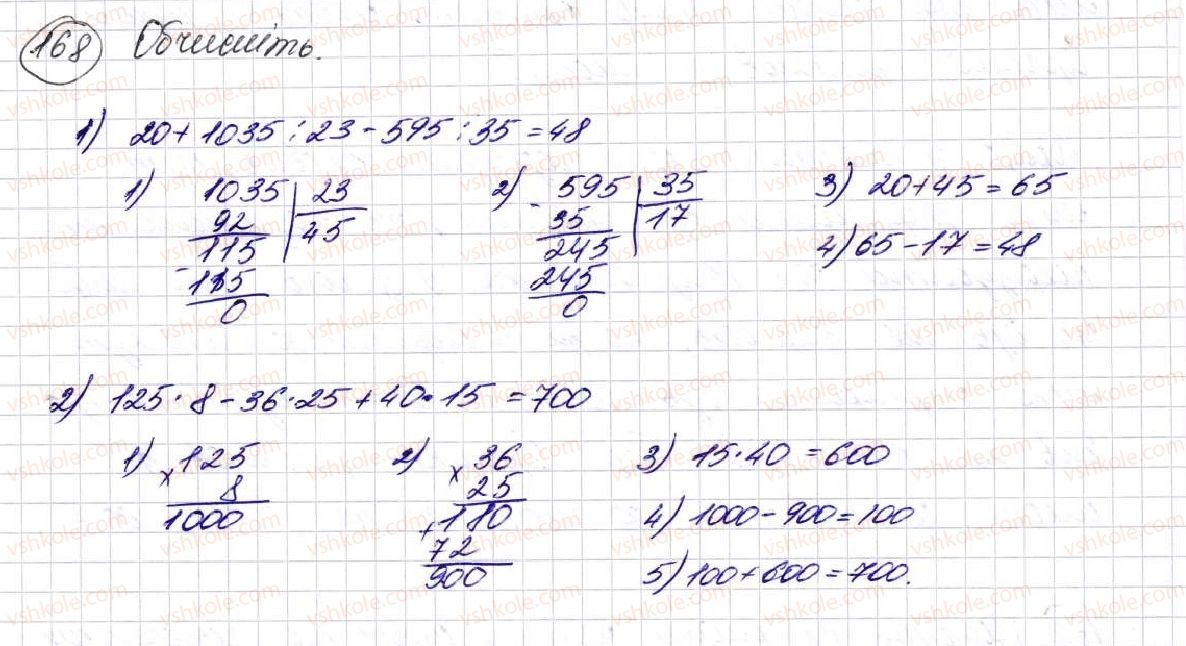 168 Обчисліть.
1) 20+1035:23-595:35=48
1) 1035 | 23
92 | 45
115
- 115
0
2) - 595 | 35
35 | 17
245
245
0
3) 20+45=65
4) 65-17=48
2) 125·8-36·25+40·15=700
1) x 125
8
1000
2) x 36
25
+ 180
72
900
3) 15·40=600
4) 1000-900=100
5) 100+600=700.
vshkole.com